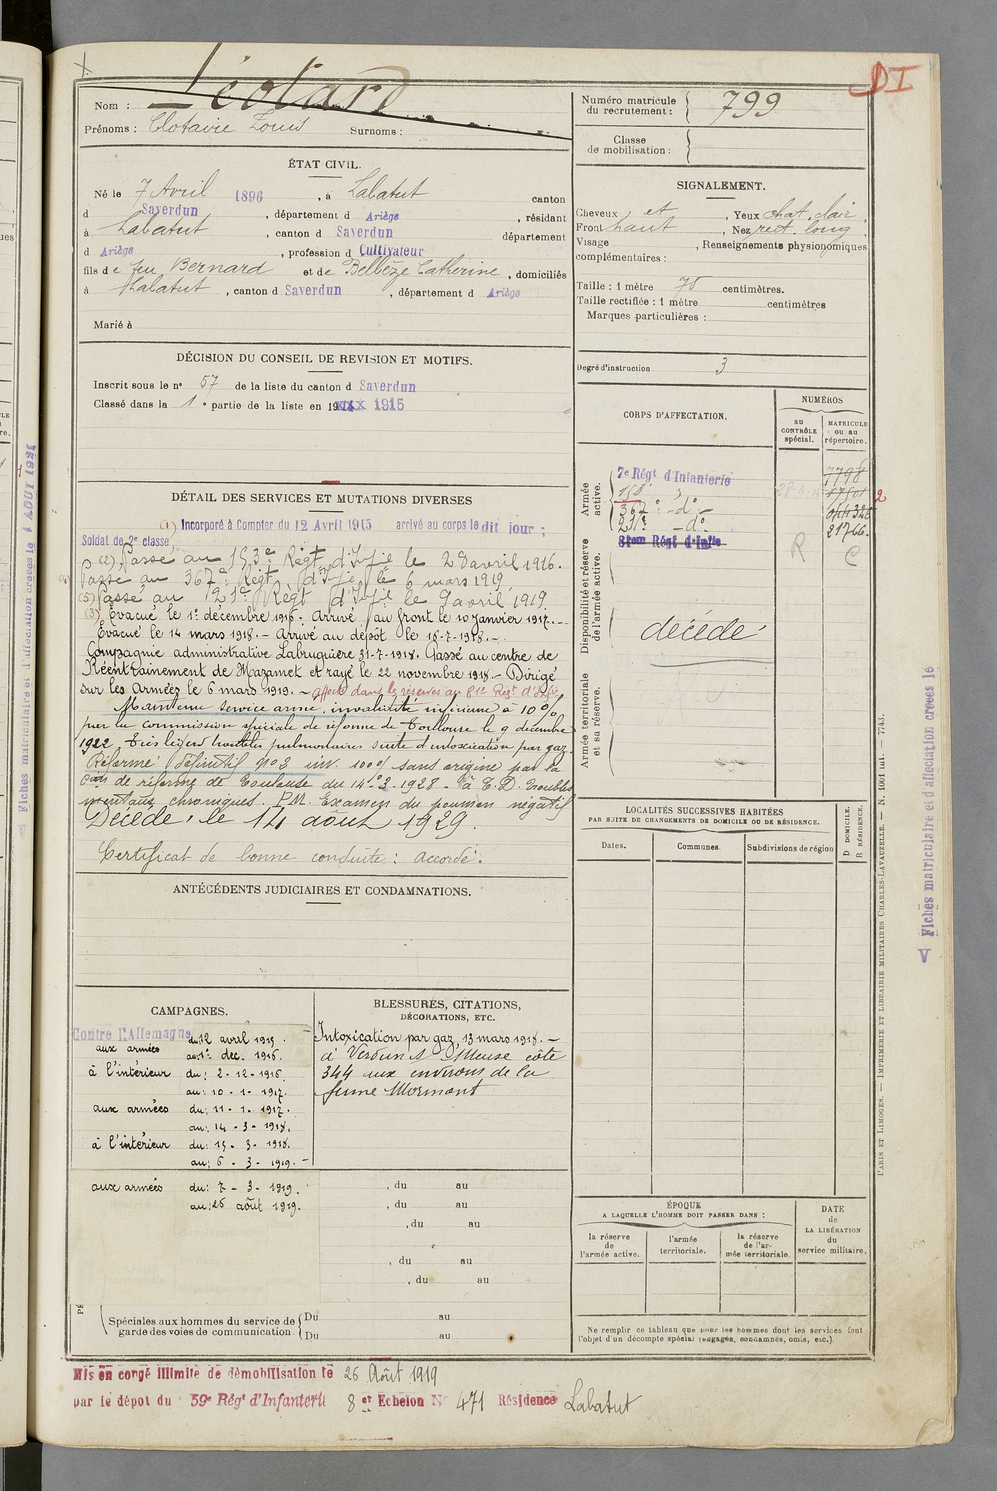 DI
Nom : Léotard
Prénoms : Clotaire Louis Surnoms :
Numéro matricule du recrutement : 799
Classe de mobilisation :
ÉTAT CIVIL.
Né le 7 Avril 1896, à Labatut canton
d Saverdun, département d Ariège, résidant
à Labatut, canton d Saverdun département
d Ariège, profession d Cultivateur
fils de feu Bernard et de Belbèze Catherine, domiciliés
à Labatut, canton d Saverdun, département d Ariège
Marié à
SIGNALEMENT.
Cheveux et, Yeux chat. clair,
Front haut, Nez rect. long,
Visage, Renseignements physionomiques
complémentaires :
Taille : 1 mètre 78 centimètres.
Taille rectifiée : 1 mètre centimètres
Marques particulières :
Degré d'instruction 3
DÉCISION DU CONSEIL DE REVISION ET MOTIFS.
Inscrit sous le n° 57 de la liste du canton d Saverdun
Classé dans la 1e partie de la liste en 1915
DÉTAIL DES SERVICES ET MUTATIONS DIVERSES
(1) Incorporé à Compter du 12 Avril 1915 arrivé au corps le dit jour ;
Soldat de 2e classe
(2) Passé au 153e Régt d'Infie le 28 avril 1916.
Passé au 367e Régt d'Infie le 6 mars 1919
(5) Passé au 121e Régt d'Infie le 9 avril 1919
(3) Évacué le 1er décembre 1916. Arrivé au front le 10 janvier 1917. -
Évacué le 14 mars 1918. - Arrivé au dépôt le 18-7-1918. -
Compagnie administrative Labruguière 31-7-1918. Passé au centre de
Réentrainement de Mazamet et rayé le 22 novembre 1918 - Dirigé
sur les armées le 6 mars 1919. - affecté dans la réserve au 81e Regt d'Infie
Maintenu service armé, invalidité inférieure à 10%
par la Commission spéciale de réforme de Toulouse le 9 décembre
1922. Très légers troubles pulmonaires suite d'intoxication par gaz
Réformé définitif n°2 inv. 100% sans origine par la
Con de réforme de Toulouse du 14-3-1928 - à E.D. troubles
mentaux chroniques. P.M. Examen du poumon négatif
Décédé le 14 août 1929.
Certificat de bonne conduite : accordé.
CORPS D'AFFECTATION.
NUMÉROS
au CONTRÔLE spécial.
MATRICULE ou au répertoire.
Armée active.
7e Régt d'Infanterie 7798
153e
367e -do-
121e -do 21766
81em Régt d'Infie
2
R C
Disponibilité et réserve de l'armée active.
décédé
Armée territoriale et sa réserve.
LOCALITÉS SUCCESSIVES HABITÉES
PAR SUITE DE CHANGEMENTS DE DOMICILE OU DE RÉSIDENCE.
Dates. Communes. Subdivisions de région
D DOMICILE.
R RÉSIDENCE.
ANTÉCÉDENTS JUDICIAIRES ET CONDAMNATIONS.
CAMPAGNES.
Contre l'Allemagne
aux armées du 12 avril 1915.
au 1er déc. 1916.
à l'intérieur du : 2-12-1916
au : 10-1-1917.
aux armées du : 11-1-1917.
au : 14-3-1918.
à l'intérieur du : 15-3-1918.
au : 6-3-1919. -
aux armées du : 7-3-1919.
au : 26 août 1919.
BLESSURES, CITATIONS,
DÉCORATIONS, ETC.
Intoxication par gaz, 13 mars 1918. -
à Verdun Meuse côte
344 aux environs de la
ferme Mormont
, du au
, du au
, du au
, du au
, du au
Spéciales aux hommes du service de garde des voies de communication
Du au
Du au
ÉPOQUE
A LAQUELLE L'HOMME DOIT PASSER DANS :
la réserve de l'armée active.
l'armée territoriale.
la réserve de l'armée territoriale.
DATE de LA LIBÉRATION du service militaire.
Ne remplir ce tableau que pour les hommes dont les services font
l'objet d'un décompte spécial (engagés, condamnés, omis, etc.).
Mis en congé illimité de démobilisation le 26 Août 1919
par le dépot du 59e Régt d'Infanterie 8 et Echelon N° 471 Résidence Labatut
PARIS ET LIMOGES. — IMPRIMERIE ET LIBRAIRIE MILITAIRES CHARLES-LAVAUZELLE. — N. 1001 int. — 7743.
V Fiches matriculaire et d'affectation creées le
V Fiches matriculaire et d'affectation creées le 1 AOUT 1921